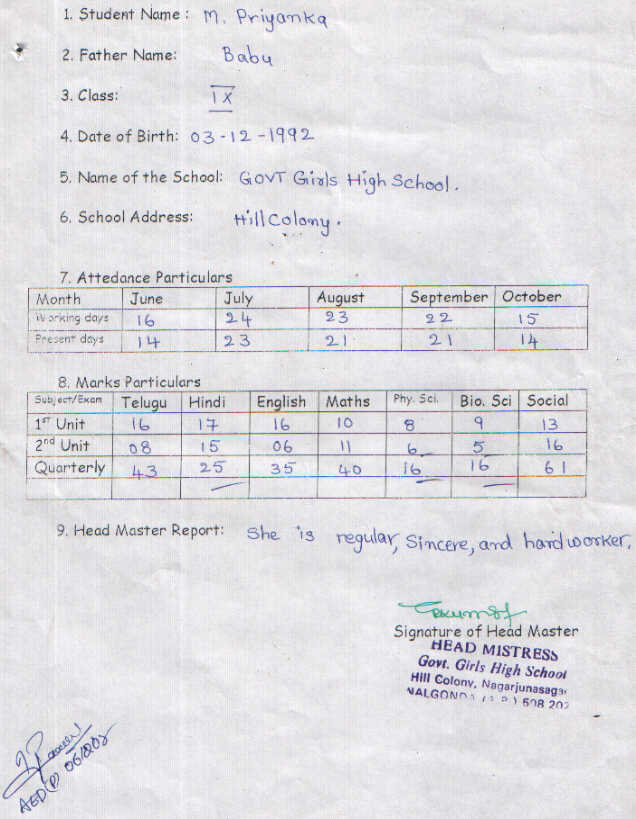 1. Student Name : M. Priyanka
2. Father Name: Babu
3. Class: IX
4. Date of Birth: 03-12-1992
5. Name of the School: GOVT Girls High School.
6. School Address: Hill Colony.
7. Attedance Particulars
Month June July August September October
Working days 16 24 23 22 15
Present days 14 23 21 21 14
8. Marks Particulars
Subject/Exam Telugu Hindi English Maths Phy. Sci. Bio. Sci Social
1ST Unit 16 17 16 10 8 9 13
2nd Unit 08 15 06 11 6 5 16
Quarterly 43 25 35 40 16 16 61
9. Head Master Report: She is regular, Sincere, and hardworker.
Signature of Head Master
HEAD MISTRESS
Govt. Girls High School
Hill Colony, Nagarjunasagar
NALGONDA 508 202